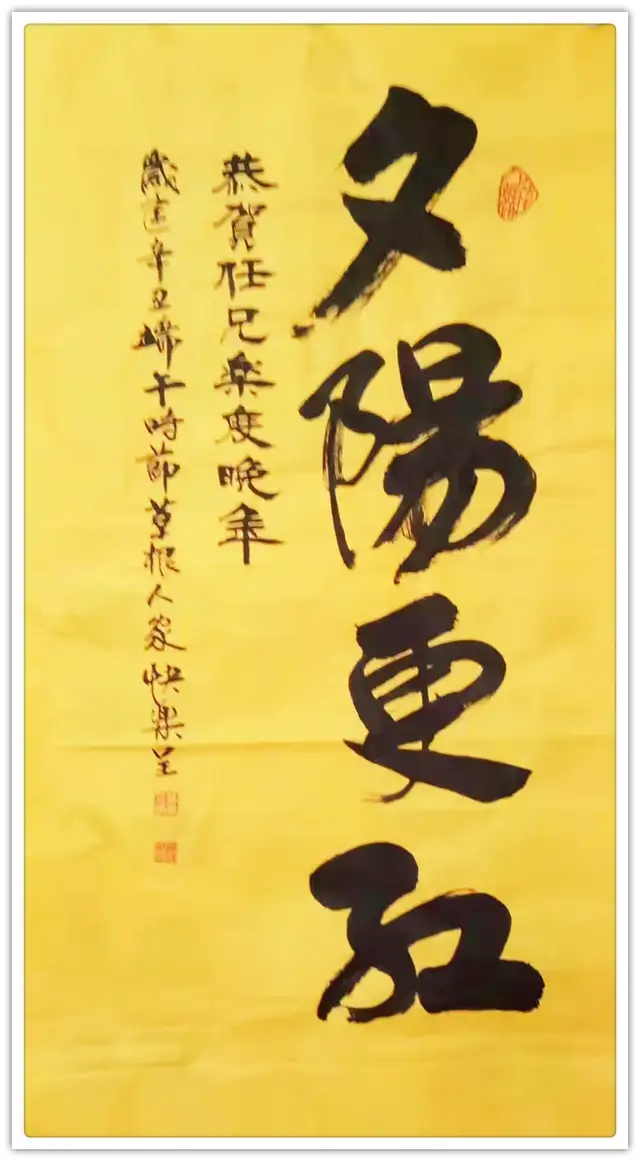 夕陽更红
恭賀任兄楽度晚年
歲在辛丑端午時節草根人家快樂呈